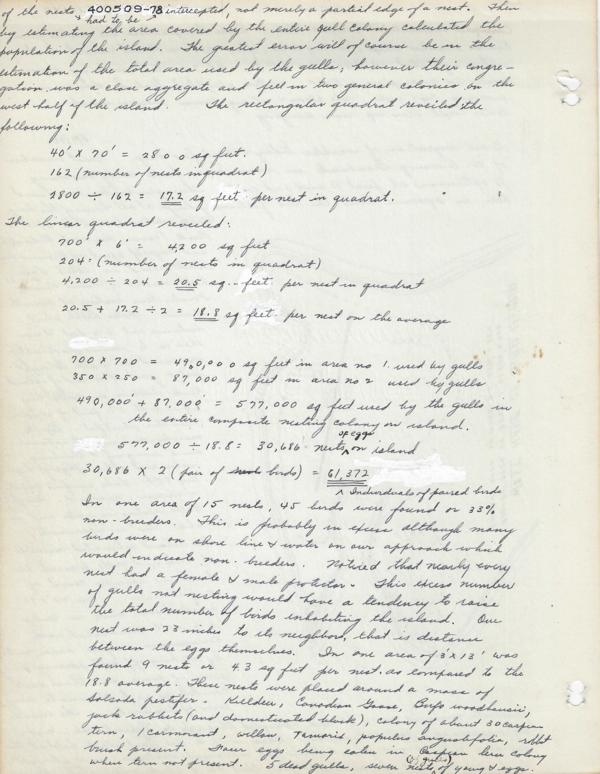 of the nests 400509-78 intercepted, not merely a partial edge of a nest. Then
had to be
by estimating the area covered by the entire gull colony calculated the
population of the island. The greatest error will of course be in the
estimation of the total area used by the gulls, however their congre-
gation was a close aggregate and feel in two general colonies on the
west half of the island. The rectangular quadrat reveiled the
following:
40' x 70' = 2800 sq feet.
162 (number of nests in quadrat)
2800 ÷ 162 = 17.2 sq feet per nest in quadrat.
The linear quadrat reveiled:
700' x 6' = 4,200 sq feet
204 · (number of nests in quadrat)
4,200 ÷ 204 = 20.5 sq. feet per nest in quadrat
20.5 + 17.2 ÷ 2 = 18.8 sq feet per nest on the average
700 x 700 = 490,000 sq feet in area no 1. used by gulls
350 x 250 = 87,000 sq feet in area no 2 used by gulls
490,000' + 87,000' = 577,000 sq feet used by the gulls in
the entire composite nesting colony on island.
of eggs
577,000 ÷ 18.8 = 30,686 nests ^ on island
30,686 x 2 (pair of birds) = 61,372
^ Individuals of paired birds
In one area of 15 nests, 45 birds were found or 33%
non-breeders. This is probably in excess although many
birds were on shore line & water on our approach which
would indicate non-breeders. Noticed that nearly every
nest had a female & male protector. This excess number
of gulls not nesting would have a tendency to raise
the total number of birds inhabiting the island. One
nest was 23 inches to its neighbor, that is distance
between the eggs themselves. In one area of 3' x 13' was
found 9 nests or 4.3 sq feet per nest, as compared to the
18.8 average. These nests were placed around a mass of
Salsoda pestifer. Killdeer, Canadian Goose, Bufo woodhousii,
jack rabbits (and domesticated black), colony of about 30 caspian
tern, 1 cormorant, willow, Tamarix, populus angustifolia, rabbit
brush present. Four eggs being eaten in Caspian tern colony
(by gulls)
when tern not present. 5 dead gulls, seven nests of young & eggs.